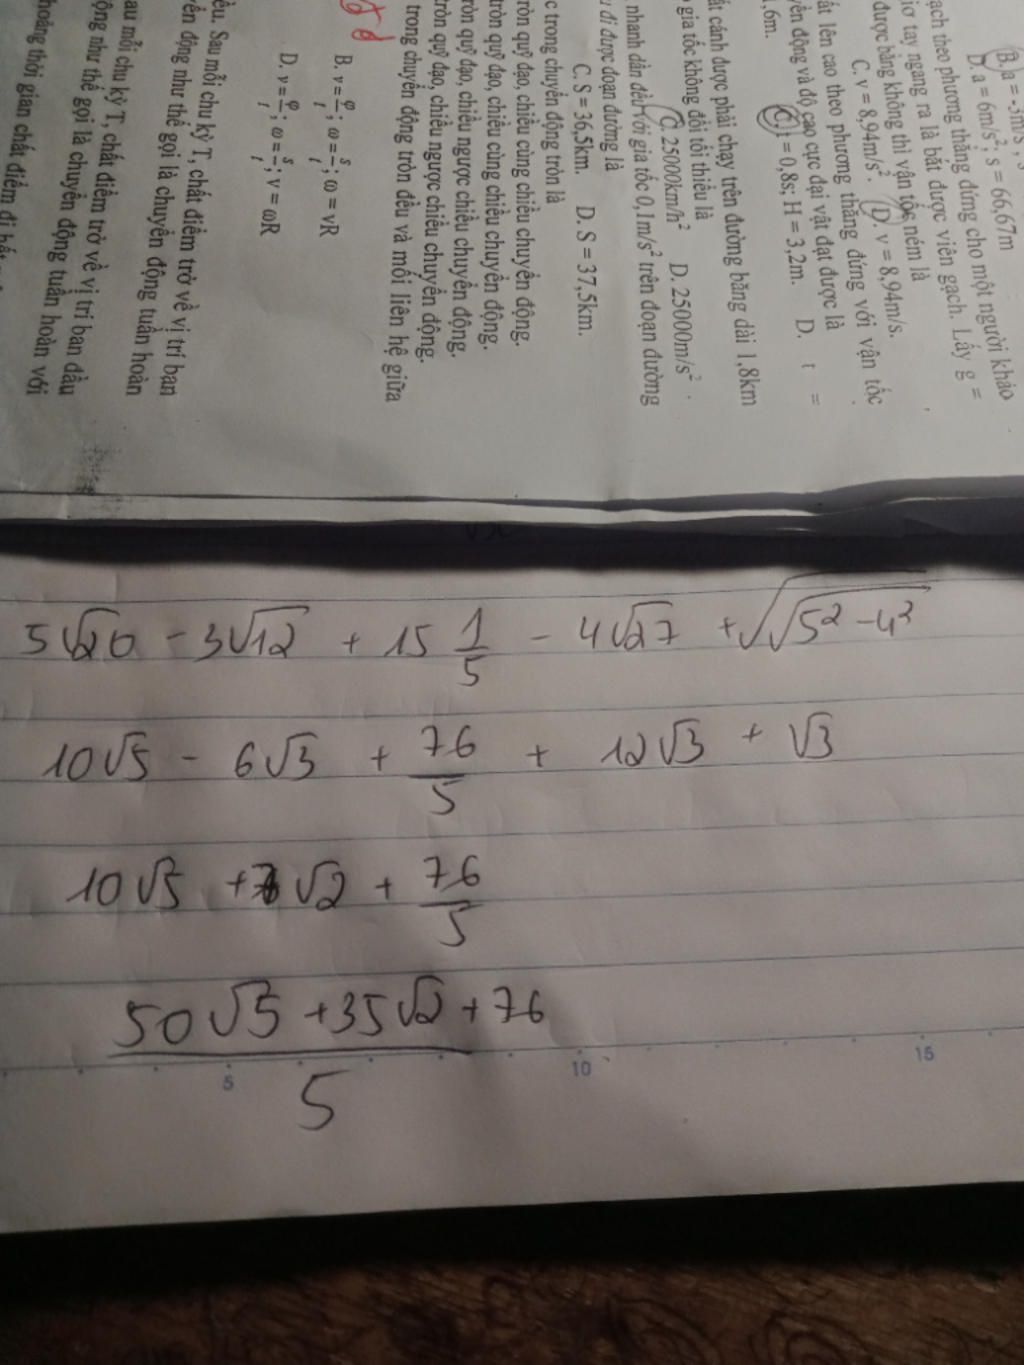 B. a = -3m/s², s
D. a = 6m/s², s = 66,67m
ạch theo phương thẳng đứng cho một người khảo
iơ tay ngang ra là bắt được viên gạch. Lấy g =
được bằng không thì vận tốc ném là
C. v = 8,94m/s². D. v = 8,94m/s.
ất lên cao theo phương thẳng đứng với vận tốc
yển động và độ cao cực đại vật đạt được là
C. t = 0,8s; H = 3,2m. D. t =
,6m.
ất cánh được phải chạy trên đường băng dài 1,8km
gia tốc không đổi tối thiểu là
C. 25000km/h² D. 25000m/s².
nhanh dần đều với gia tốc 0,1m/s² trên đoạn đường
đi được đoạn đường là
C. S = 36,5km. D. S = 37,5km.
c trong chuyển động tròn là
ròn quỹ đạo, chiều cùng chiều chuyển động.
tròn quỹ đạo, chiều cùng chiều chuyển động.
ròn quỹ đạo, chiều ngược chiều chuyển động.
tròn quỹ đạo, chiều ngược chiều chuyển động.
trong chuyển động tròn đều và mối liên hệ giữa
B. v = φ/t; ω = s/t; ω = vR
D. v = φ/t; ω = s/t; v = ωR
ều. Sau mỗi chu kỳ T, chất điểm trở về vị trí ban
yển động như thế gọi là chuyển động tuần hoàn
au mỗi chu kỳ T, chất điểm trở về vị trí ban đầu
ộng như thế gọi là chuyển động tuần hoàn với
hoảng thời gian chất điểm đi hết
5√20 - 3√12 + 15 1/5 - 4√27 + √√5² - 4²
10√5 - 6√3 + 76/5 + 12√3 + √3
10√5 + 7√2 + 76/5
50√5 + 35√2 + 76
5
5 10 15